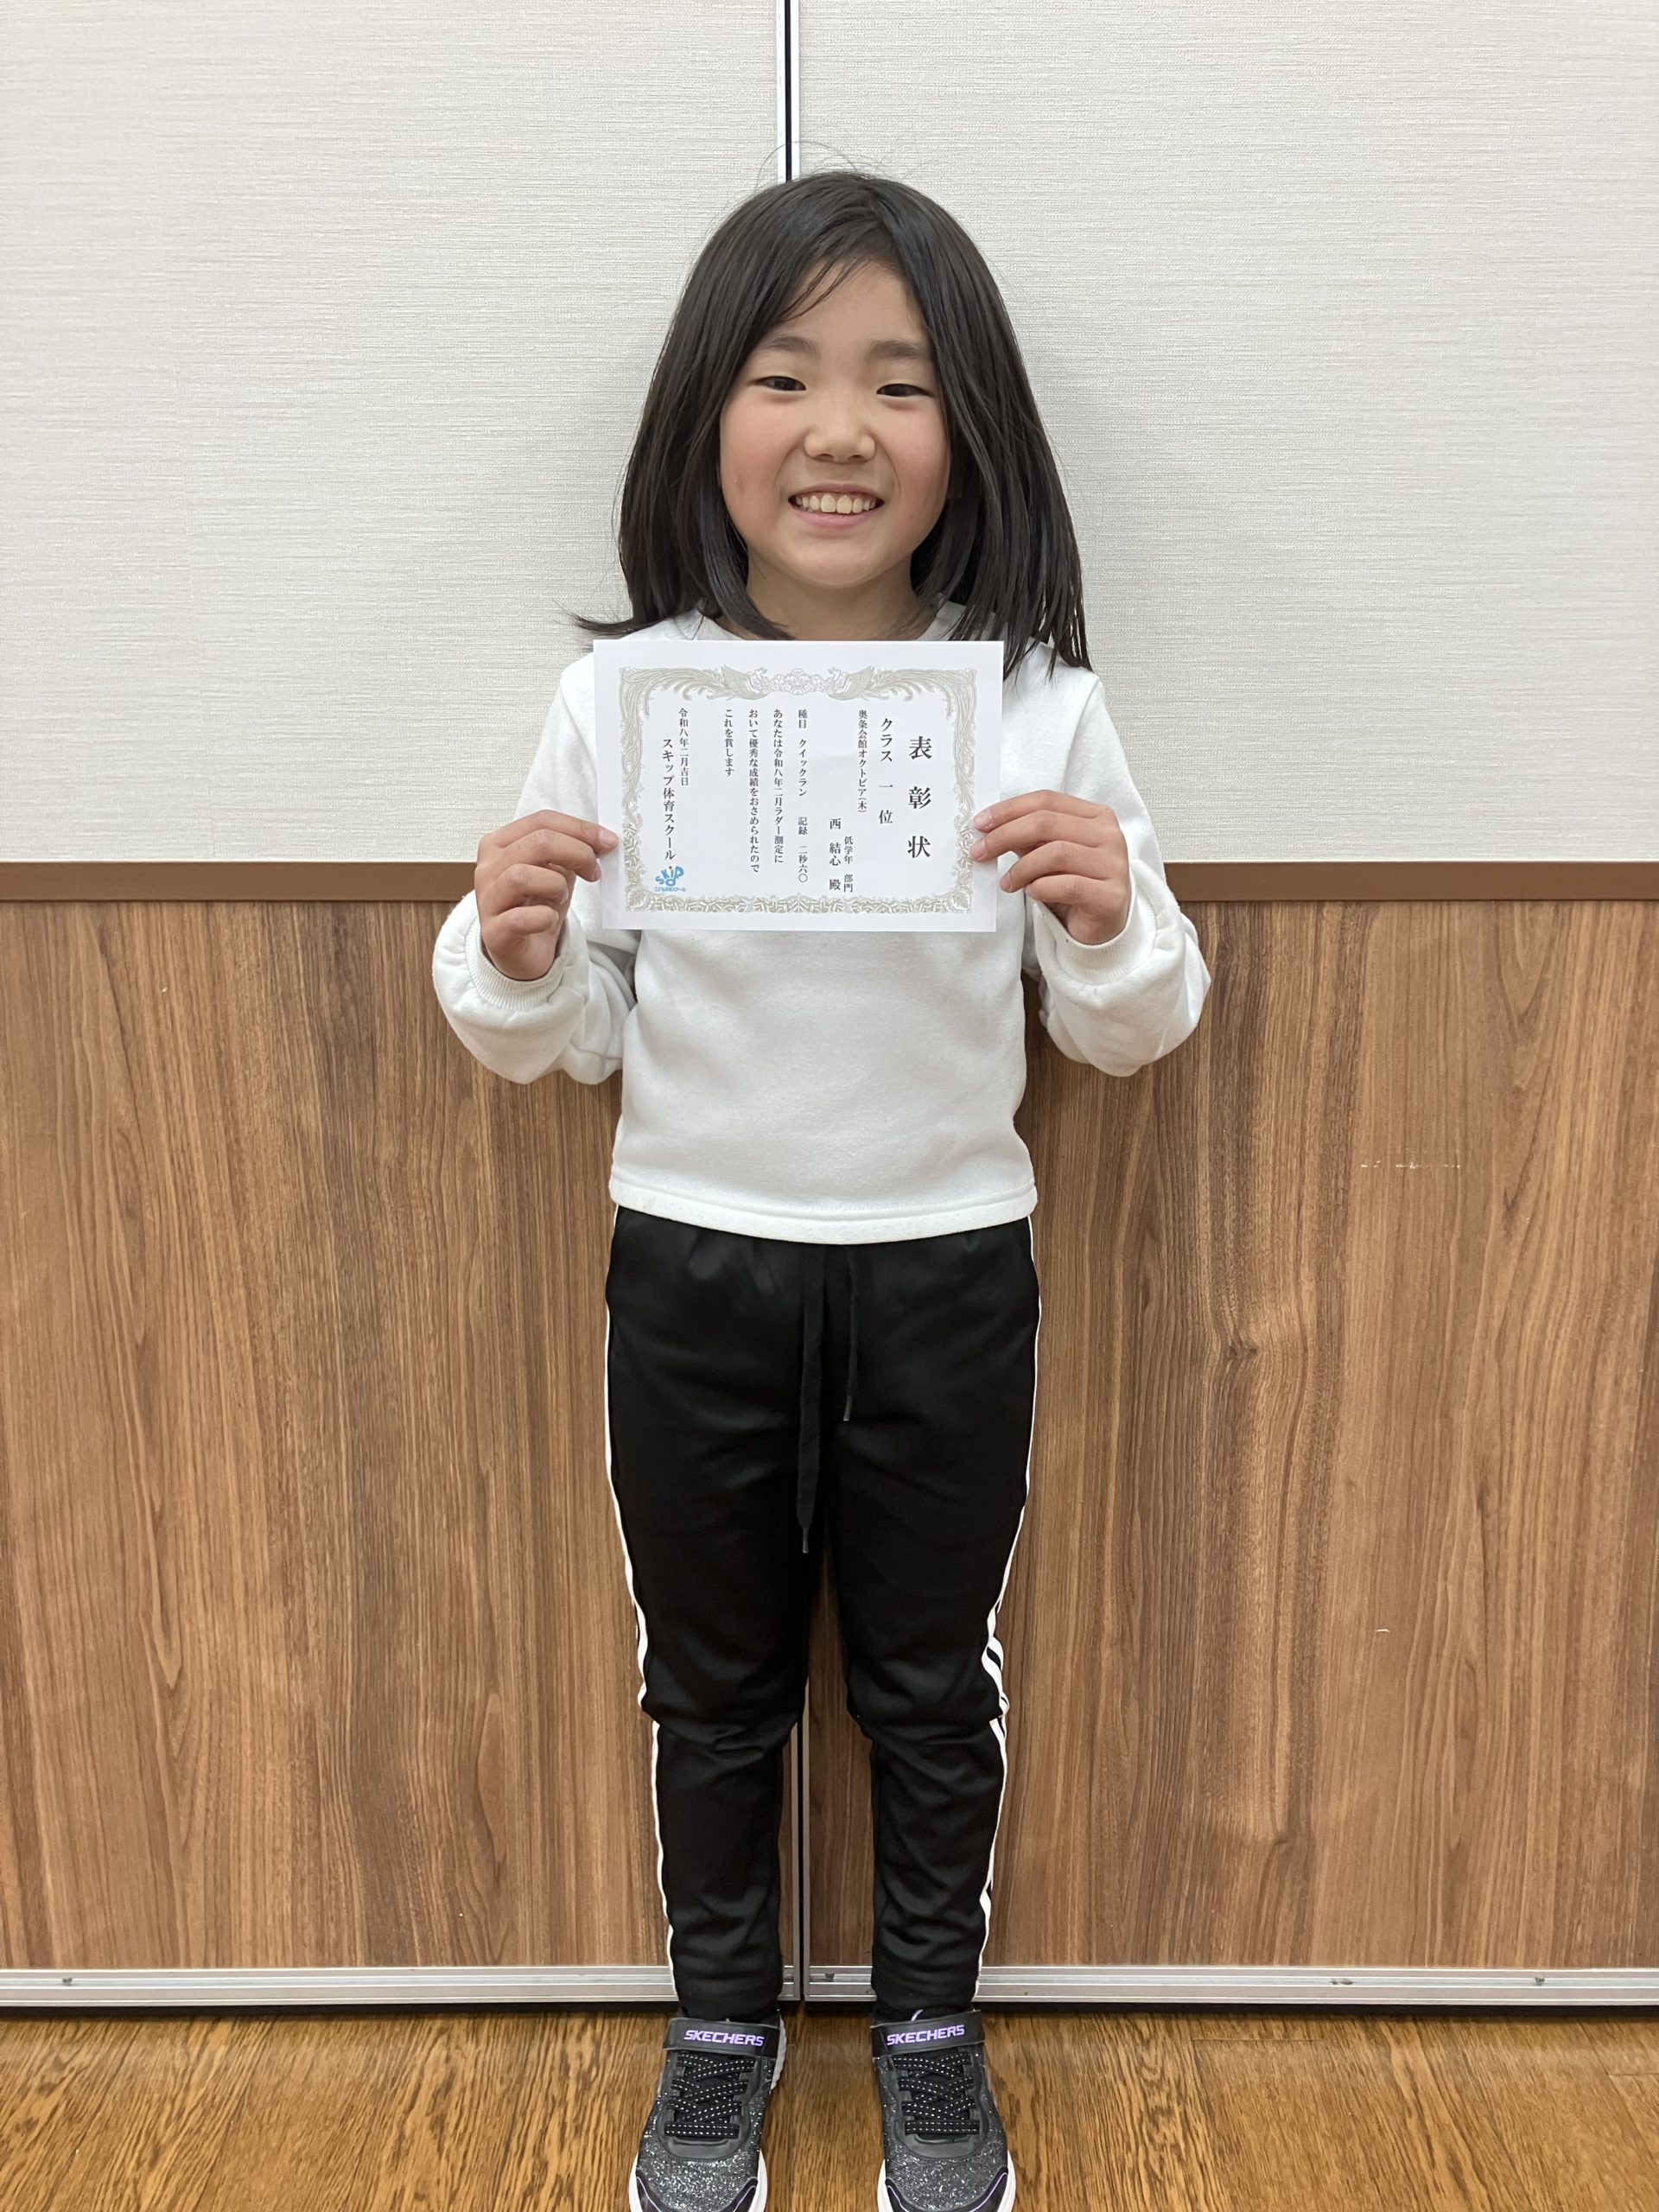 表彰状
クラス 一位
奥条会館オクトピア(木)
低学年 部門
西 結心 殿
種目 クイックラン 記録 二秒六〇
あなたは令和八年二月ラダー測定に
おいて優秀な成績をおさめられたので
これを賞します
令和八年二月吉日
スキップ体育スクール
SKIP
こども体育スクール
SKECHERS
SKECHERS